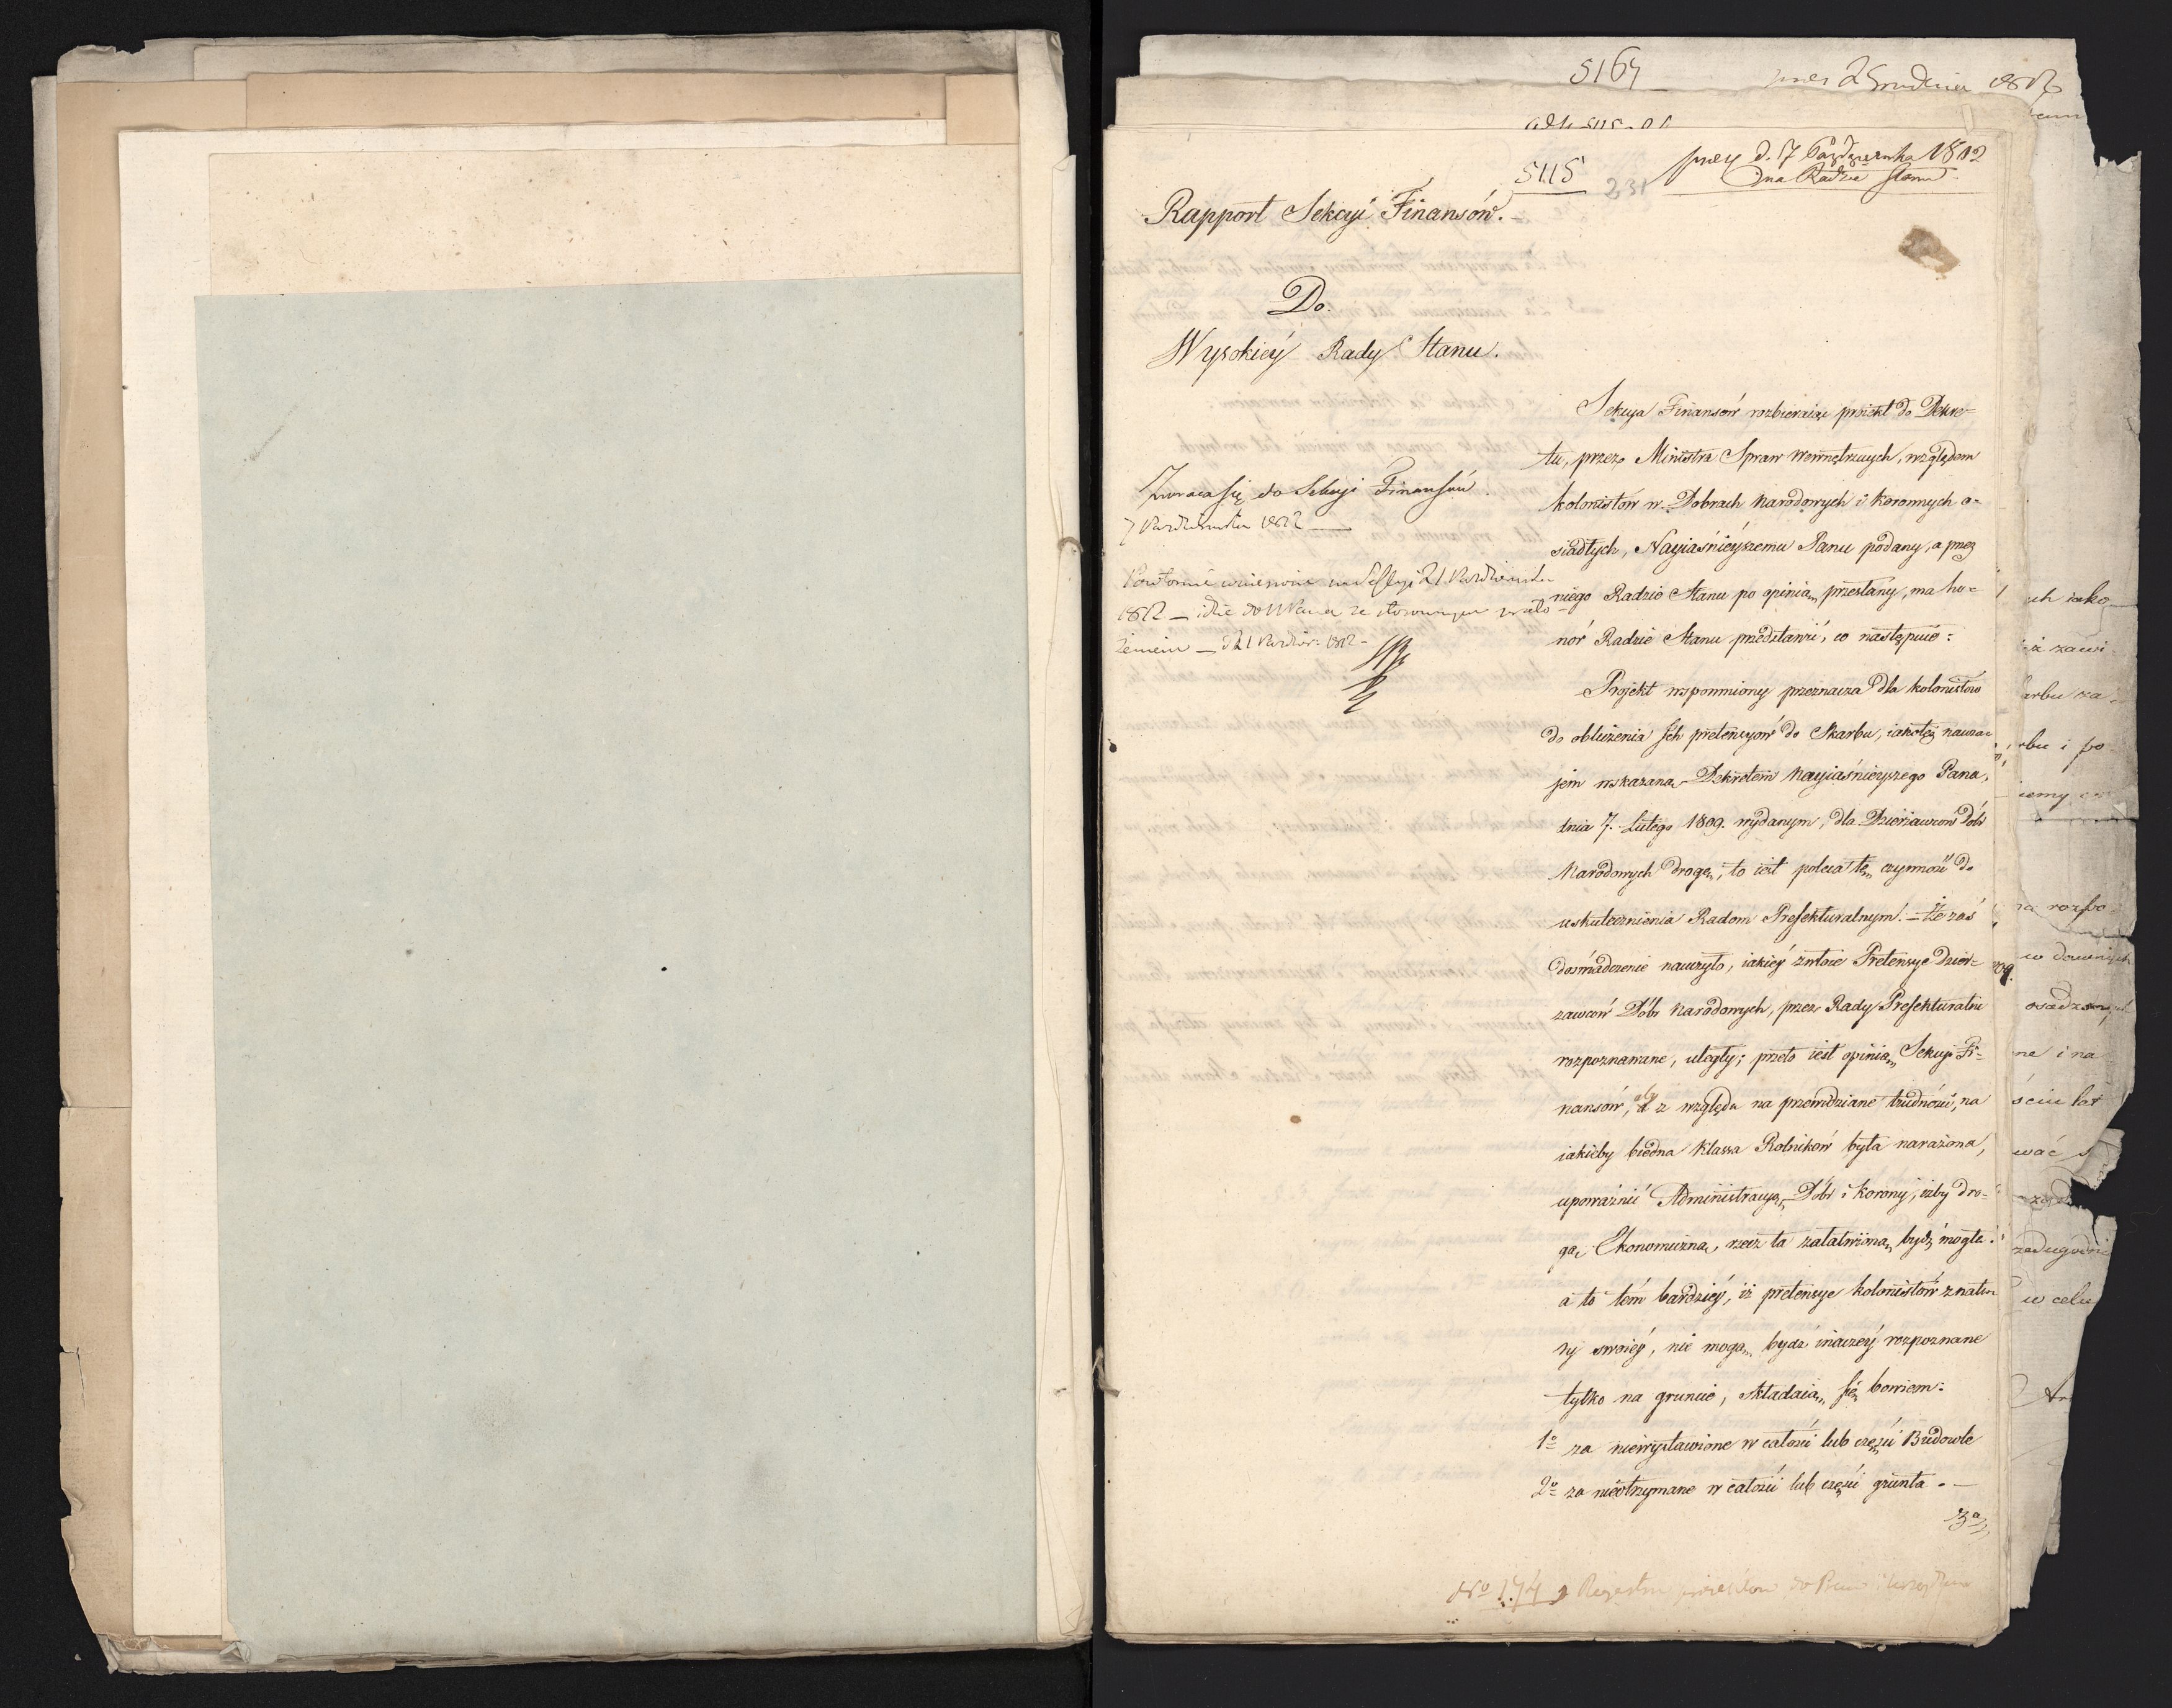 5164
2 Grudnia 1812
5115
231
prez d. 7 Października 1812
na Radzie Stanu
Rapport Sekcyi Finansów.
Do
Wysokiey Rady Stanu.
Zwraca się do Sekcyi Finansów.
7 Października 1812
Powtórnie wniesione na Sessyi 21 Październi
1812 – idzie do JW Pana ze stosownym
żeniem – d 21 Paździer: 1812 –
Sekcya Finansów rozbieraiąc proiekt do Dekre-
tu, przez Ministra Spraw Wewnętrznych, względem
kolonistów w Dobrach Narodowych i Koronnych o-
siadłych, Nayiaśnieyszemu Panu podany, a przez
niego Radzie Stanu po opinią przesłany, ma ho-
nór Radzie Stanu przedstawić, co następuie:
Projekt wspomniony przeznacza dla kolonistów
do obliczenia Ich pretensyów do Skarbu, iakoteż nawza
jem wskazaną Dekretem Nayiaśnieyszego Pana,
dnia 7. Lutego 1809. wydanym, dla Dzierżawców Dóbr
Narodowych drogę, to iest poleca tę czynność do
uskutecznienia Radom Prefekturalnym. – Że zaś
doświadczenie nauczyło, iakiey zwłoce Pretensye Dzier-
żawców Dóbr Narodowych, przez Rady Prefekturalne
rozpoznawane, uległy; przeto iest opinią Sekcyi Fi-
nansów, aby z względu na przewidziane trudności, na
iakieby biedna Klassa Rolników była narażona,
upoważnić Administracyą Dóbr i Korony, iżby dro-
gą Ekonomiczną, rzecz ta załatwioną bydź mogła:
a to tém bardziéy, iż pretensye kolonistów z natu
ry swoiéy, nie mogą bydź inaczéy rozpoznane
tylko na gruncie, składaią się bowiem:
1o za niewystawione w całości lub części Budowle
2o za nieotrzymane w całości lub części grunta. –
3o
No 174 z Regestru proiektów do Praw i
uch iako
iż zawi
arbu za-
rbu i po
iemy
na rozpo
w dawnych
809.
osadzonych
ne i na
ściu lat
wać
w celu